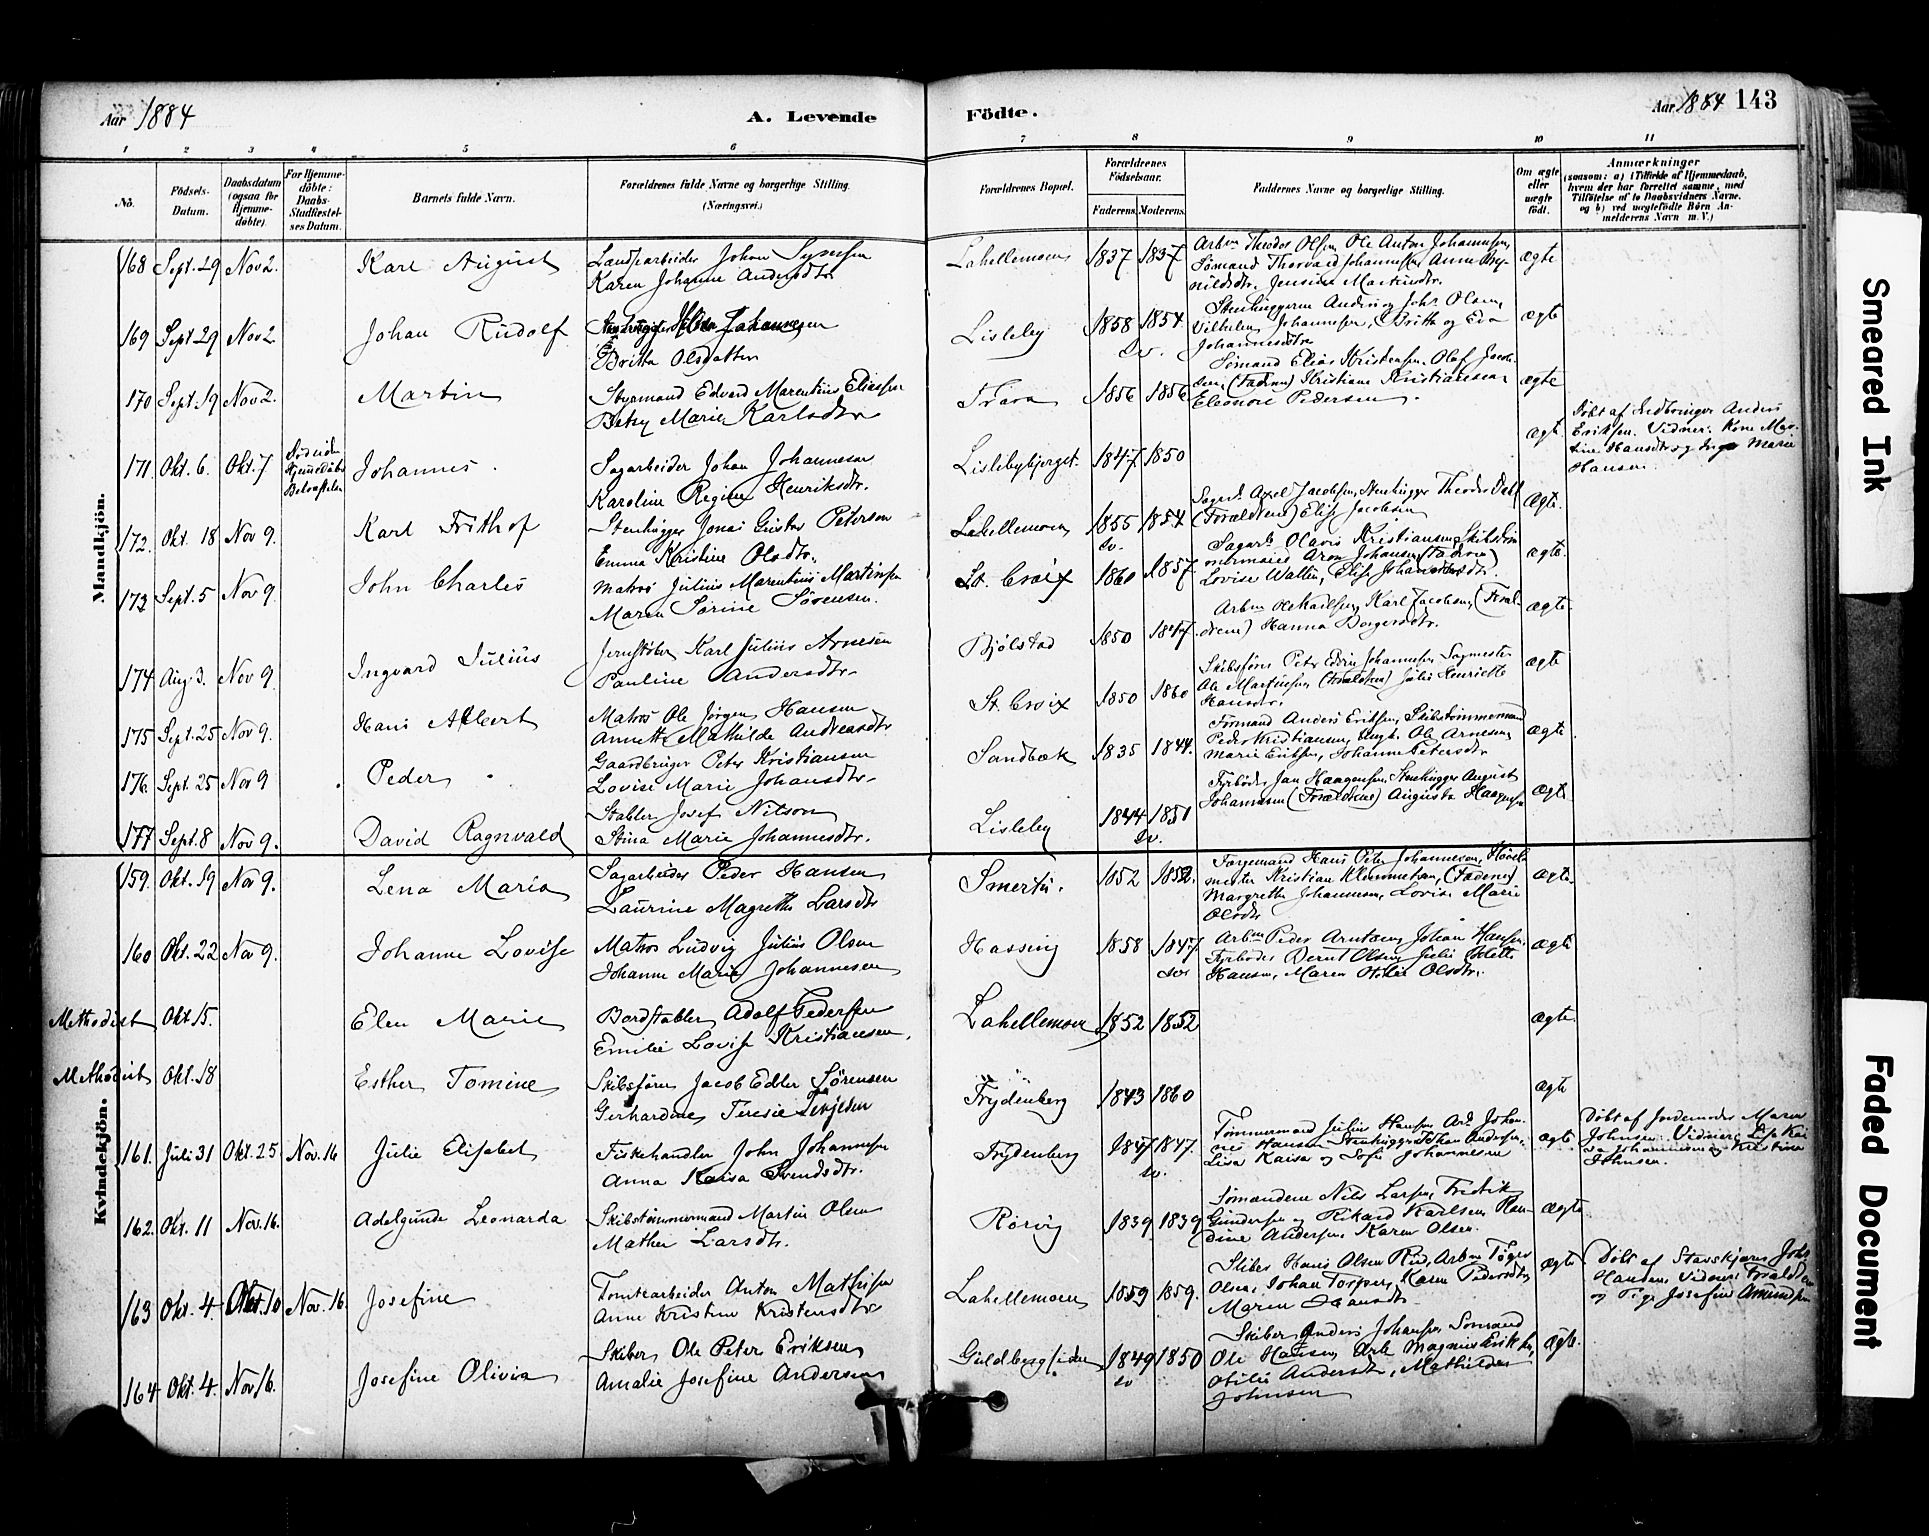 Aar 1884
A. Levende
Födte.
Aar 1884 143
1 2 3 4 5 6 7 8 9 10 11
No.
Födsels-Datum.
Daabsdatum (ogsaa for Hjemmedöbte)
For Hjemmedöbte: Daabs-Stadfæstelses Datum.
Barnets fulde Navn.
Forældrenes fulde Navne og borgerlige Stilling. (Næringsvei.)
Forældrenes Bopæl.
Forældrenes Födselsaar.
Faderens. Moderens.
Faddernes Navne og borgerlige Stilling.
Om ægte eller uægte födt.
Anmærkninger
(saasom: a) i Tilfælde af Hjemmedaab, hvem der har forrettet samme, med Tilföielse af to Daabsvidners Navne. og b) ved uægtefödte Börn Anmelderens Navn m. V.)
Mandkjön.
168 Sept. 29 Nov 2. Karl August
Johan
Karen Johanne Andersdtr
Lahellemoen 1837 1837
Arbm Theodor Olsen, Ole Anton Johannesen,
Sømand Thorvald Johannesen Anne
Martinsdtr.
ægte
169 Sept 29 Nov 2 Johan Rudolf
Johannesen
Britta Olsdatter
Lisleby 1858 1854
Sv.
Stenhuggerne Anders og Johs. Olsen,
Vilhelm Johannesen, Britta og Eva
Johannesdtr
ægte
170 Sept. 19 Nov 2. Martin
Styrmand Edvard Marentius Eliassen
Betzy Marie Karlsdtr
Trara 1856 1856
Sømand Elias Kristensen. Olaf Jacob-
sen, (Faderen) Kristiane Kristiansen
Eleonore Pedersen.
ægte
171 Okt. 6. Okt. 7
Død uden
Hjemmedaabs
Johannes.
Sagarbeider Johan Johannesen
Karoline Regine Henriksdtr.
Lislebybjerget. 1847. 1850
ægt.
Døbt af Indbringer Anders
Eriksen. Vidner: Kone
Hansdtr og Marie
Hansen.
172. Okt. 18 Nov 9. Karl Frithof
Stenhugger Jonas Gustav Peterson
Emma Kristine Olsdtr.
Lahellemoen 1855 1854
Sv.
Sagarb. Axel Jacobsen, Stenhugger Theodor
(Forældrene) Elise Jacobsen
ægte.
173 Sept. 5 Nov 9. John Charles
Matros Julius Marentius Martinsen
Maren Sørine Sørensen.
St. Croix 1860 1857.
Sagarb. Olavis Kristiansen, Skibstøm-
mermænd Aron Johansen (Faderen)
Lovise Wallin, Elise Johannesdtr.
ægte.
174 Aug. 3. Nov 9 Ingvard Julius
Jernstøber Karl Julius Arnesen
Pauline Andersdtr.
Bjølstad 1850 1847
Arbm Ole Karlsen, Karl Jacobsen, (Foræl-
drene) Hanna Borgersdtr.
ægte.
175 Sept. 25 Nov 9. Hans Albert
Matros Ole Jørgen Hansen
Annette Mathilde Andreasdtr
St. Croix 1850 1860
Skibsfører Peter Edvin Johannesen Sagmester
Ole Martinsen, (Forældrene) Julie Henriette
Hansdtr.
ægte
176. Sept. 25 Nov 9 Peder
Gaardbruger Peter Kristiansen
Lovise Marie Johansdtr.
Sandbæk 1835 1844.
Formand Anders Eriksen, Skibstømmermand
Peder Kristiansen, Ole Arnesen,
Marie Eriksen, Johanne Petersdtr
ægte
177 Sept. 8 Nov 9. David Ragnvald
Stabler Josef Nilson
Stina Marie Johannesdtr.
Lisleby 1844 1851
Sv.
Fyrbøder Jan Haagensen, Stenhugger August
Johannesen (Forældrene) Augusta Haagensen
ægte
Kvindekjön.
159. Okt. 19 Nov 9. Lena Maria
Sagarbeider Peder Hansen
Laurine Magrethe Larsdtr
Smertu. 1852 1852.
Færgemand Hans Peter Johannesen, Høvel-
mester Kristian Klemmetsen, (Faderen)
Margrethe Johannesen, Lovise Marie
Olsdtr
ægte.
160 Okt. 22 Nov 9. Johanne Lovise
Matros Ludvig Julius Olsen
Johanne Marie Johannesen
Hassing 1858 1847
Arbm Peder Arntsen, Johan Hansen,
Fyrbøder Bernt Olsen, Julie
Hansen, Maren Otilie Olsdtr.
ægte
Methodist Okt. 15. Elen Marie
Bordstabler Adolf Pedersen
Emilie Lovise Kristiansen.
Lahellemoen 1852 1852
ægte.
Methodist Okt. 18 Esther Tomine
Skibsfører Jacob Edler Sørensen
Gerhardine Teresie Terjesen
Frydenberg 1843 1860
ægte
161. Juli 31 Okt. 25 Nov. 16 Julie Elisabet
Fiskehandler John Johannesen
Anna Kaisa Svendsdtr.
Frydenberg 1847 1847.
sv.
Tømmermand Julius Hansen Arb. Johan-
nes Hansen Stenhugger Johan Andersen,
Lisa Kaisa og Sofie Johannesen
ægte
Døbt af Jordemoder Maren
Johnsen. Vidner: Lisa Kai-
sa Johannesen og Kristine
Johnsen.
162. Okt. 11 Nov. 16. Adelgunde Leonarda
Skibstømmermand Martin Olsen
Mathea Larsdtr.
Rørvig 1839 1839
Sømændene Nils Larsen, Fredrik
Gundersen og Rikard Karlsen, Han-
dine Andersen, Karen Olsen.
ægte
163 Okt. 4. Okt. 10 Nov. 16. Josefine
Tomtearbeider Anton Mathisen
Anne Kristine Kristensdtr
Lahellemoen 1859 1859.
Sliber Hans Olsen Rød, Arbm
Olsen, Johan Torpsen, Karen Pedersdtr
Maren Hansdtr
ægte
Døbt af Johs.
Hansen, Vidner: Forældrene
og Pige Josefine Amundsen
164 Okt. 4. Nov 16. Josefine Olivia
Skiber Ole Peter Eriksen
Amalie Josefine Andersen
Guldbergsiden 1849 1850
sv
Skiber Anders Johansen, Sømand
Ole Hansen, Arb. Magnus Eriksen,
Otilie Andersdtr, Mathilde
Johnsen
ægte.
Smeared Ink
Faded Document